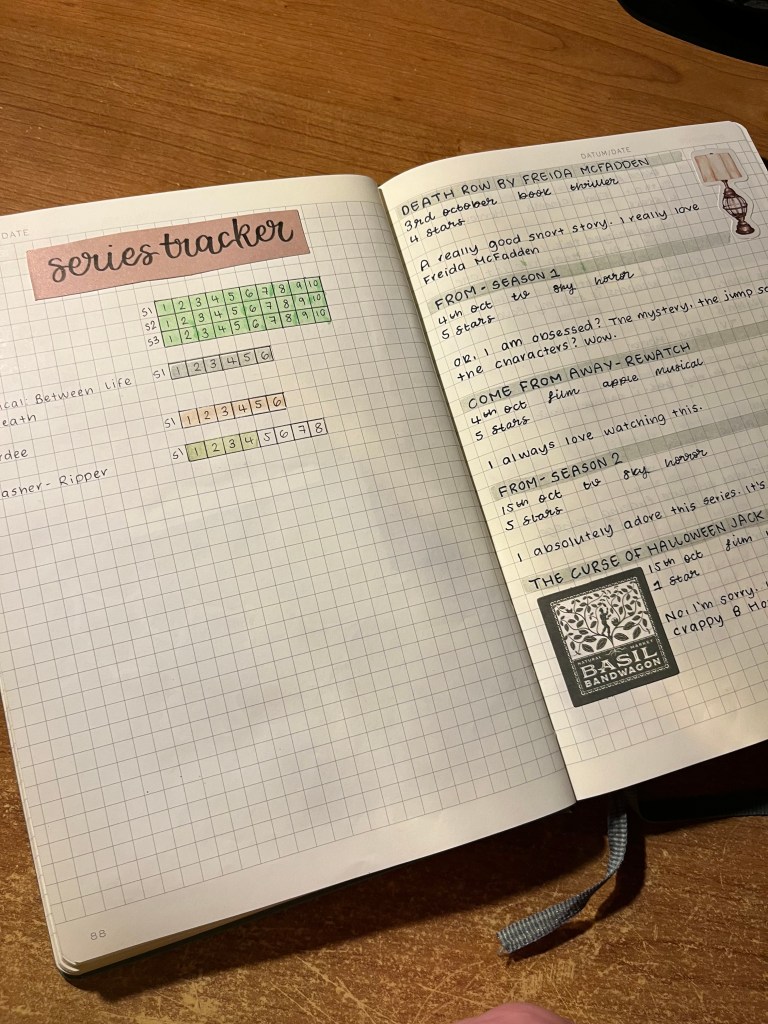 DATE
series tracker
S1 1 2 3 4 5 6 7 8 9 10
S2 1 2 3 4 5 6 7 8 9 10
S3 1 2 3 4 5 6 7 8 9 10
ical: Between Life
eath
S1 1 2 3 4 5 6
rdee
S1 1 2 3 4 5 6
asher - Ripper
S1 1 2 3 4 5 6 7 8
88
DATUM/DATE
DEATH ROW BY FREIDA MCFADDEN
3rd october book thriller
4 stars
A really good short story. I really love
Freida McFadden
FROM - SEASON 1
4th oct tv sky horror
5 stars
OK, I am obsessed? The mystery, the jump sc
the characters? Wow.
COME FROM AWAY - REWATCH
4th oct film apple musical
5 stars
I always love watching this.
FROM - SEASON 2
15th oct tv sky horror
5 stars
I absolutely adore this series. It's
THE CURSE OF HALLOWEEN JACK
15th oct film
1 star
No, I'm sorry.
crappy B Ho
NATURAL MARKET
BASIL
BANDWAGON